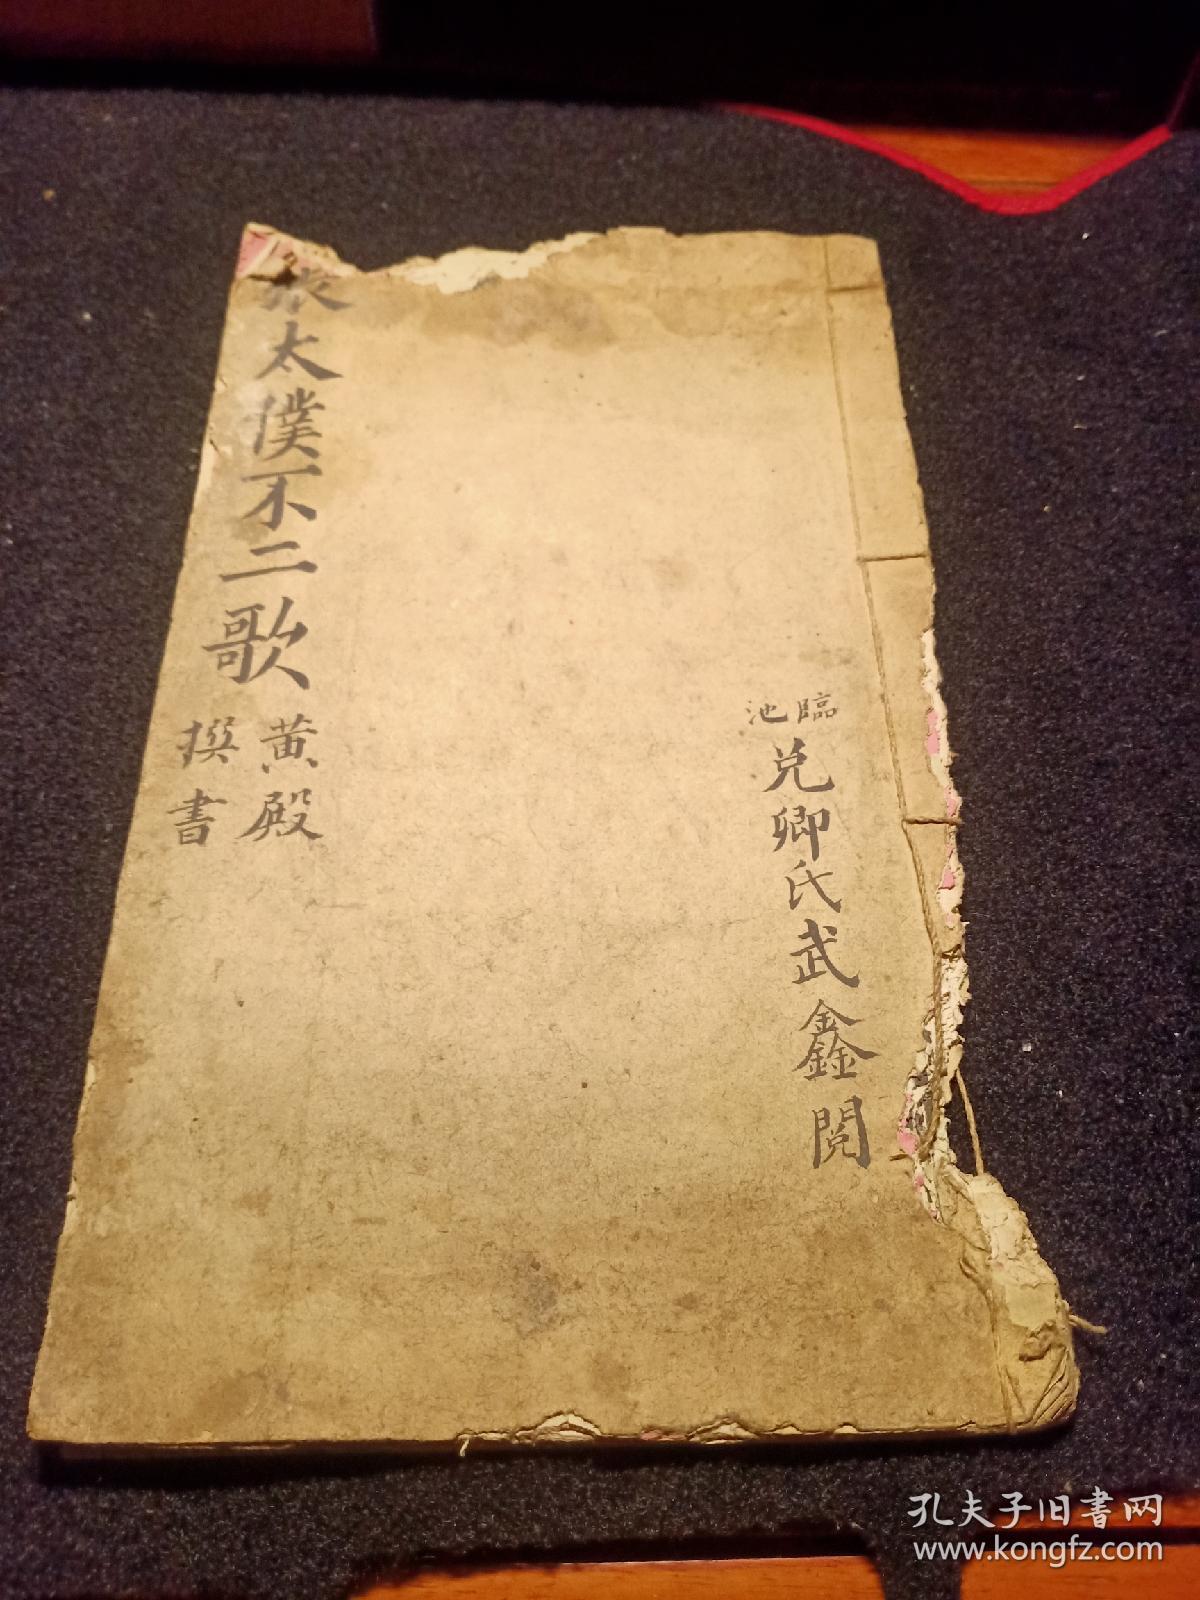 臨池
兑卿氏武鑫閱
張太僕不二歌
黄殿
撰書
孔夫子旧書网
www.kongfz.com